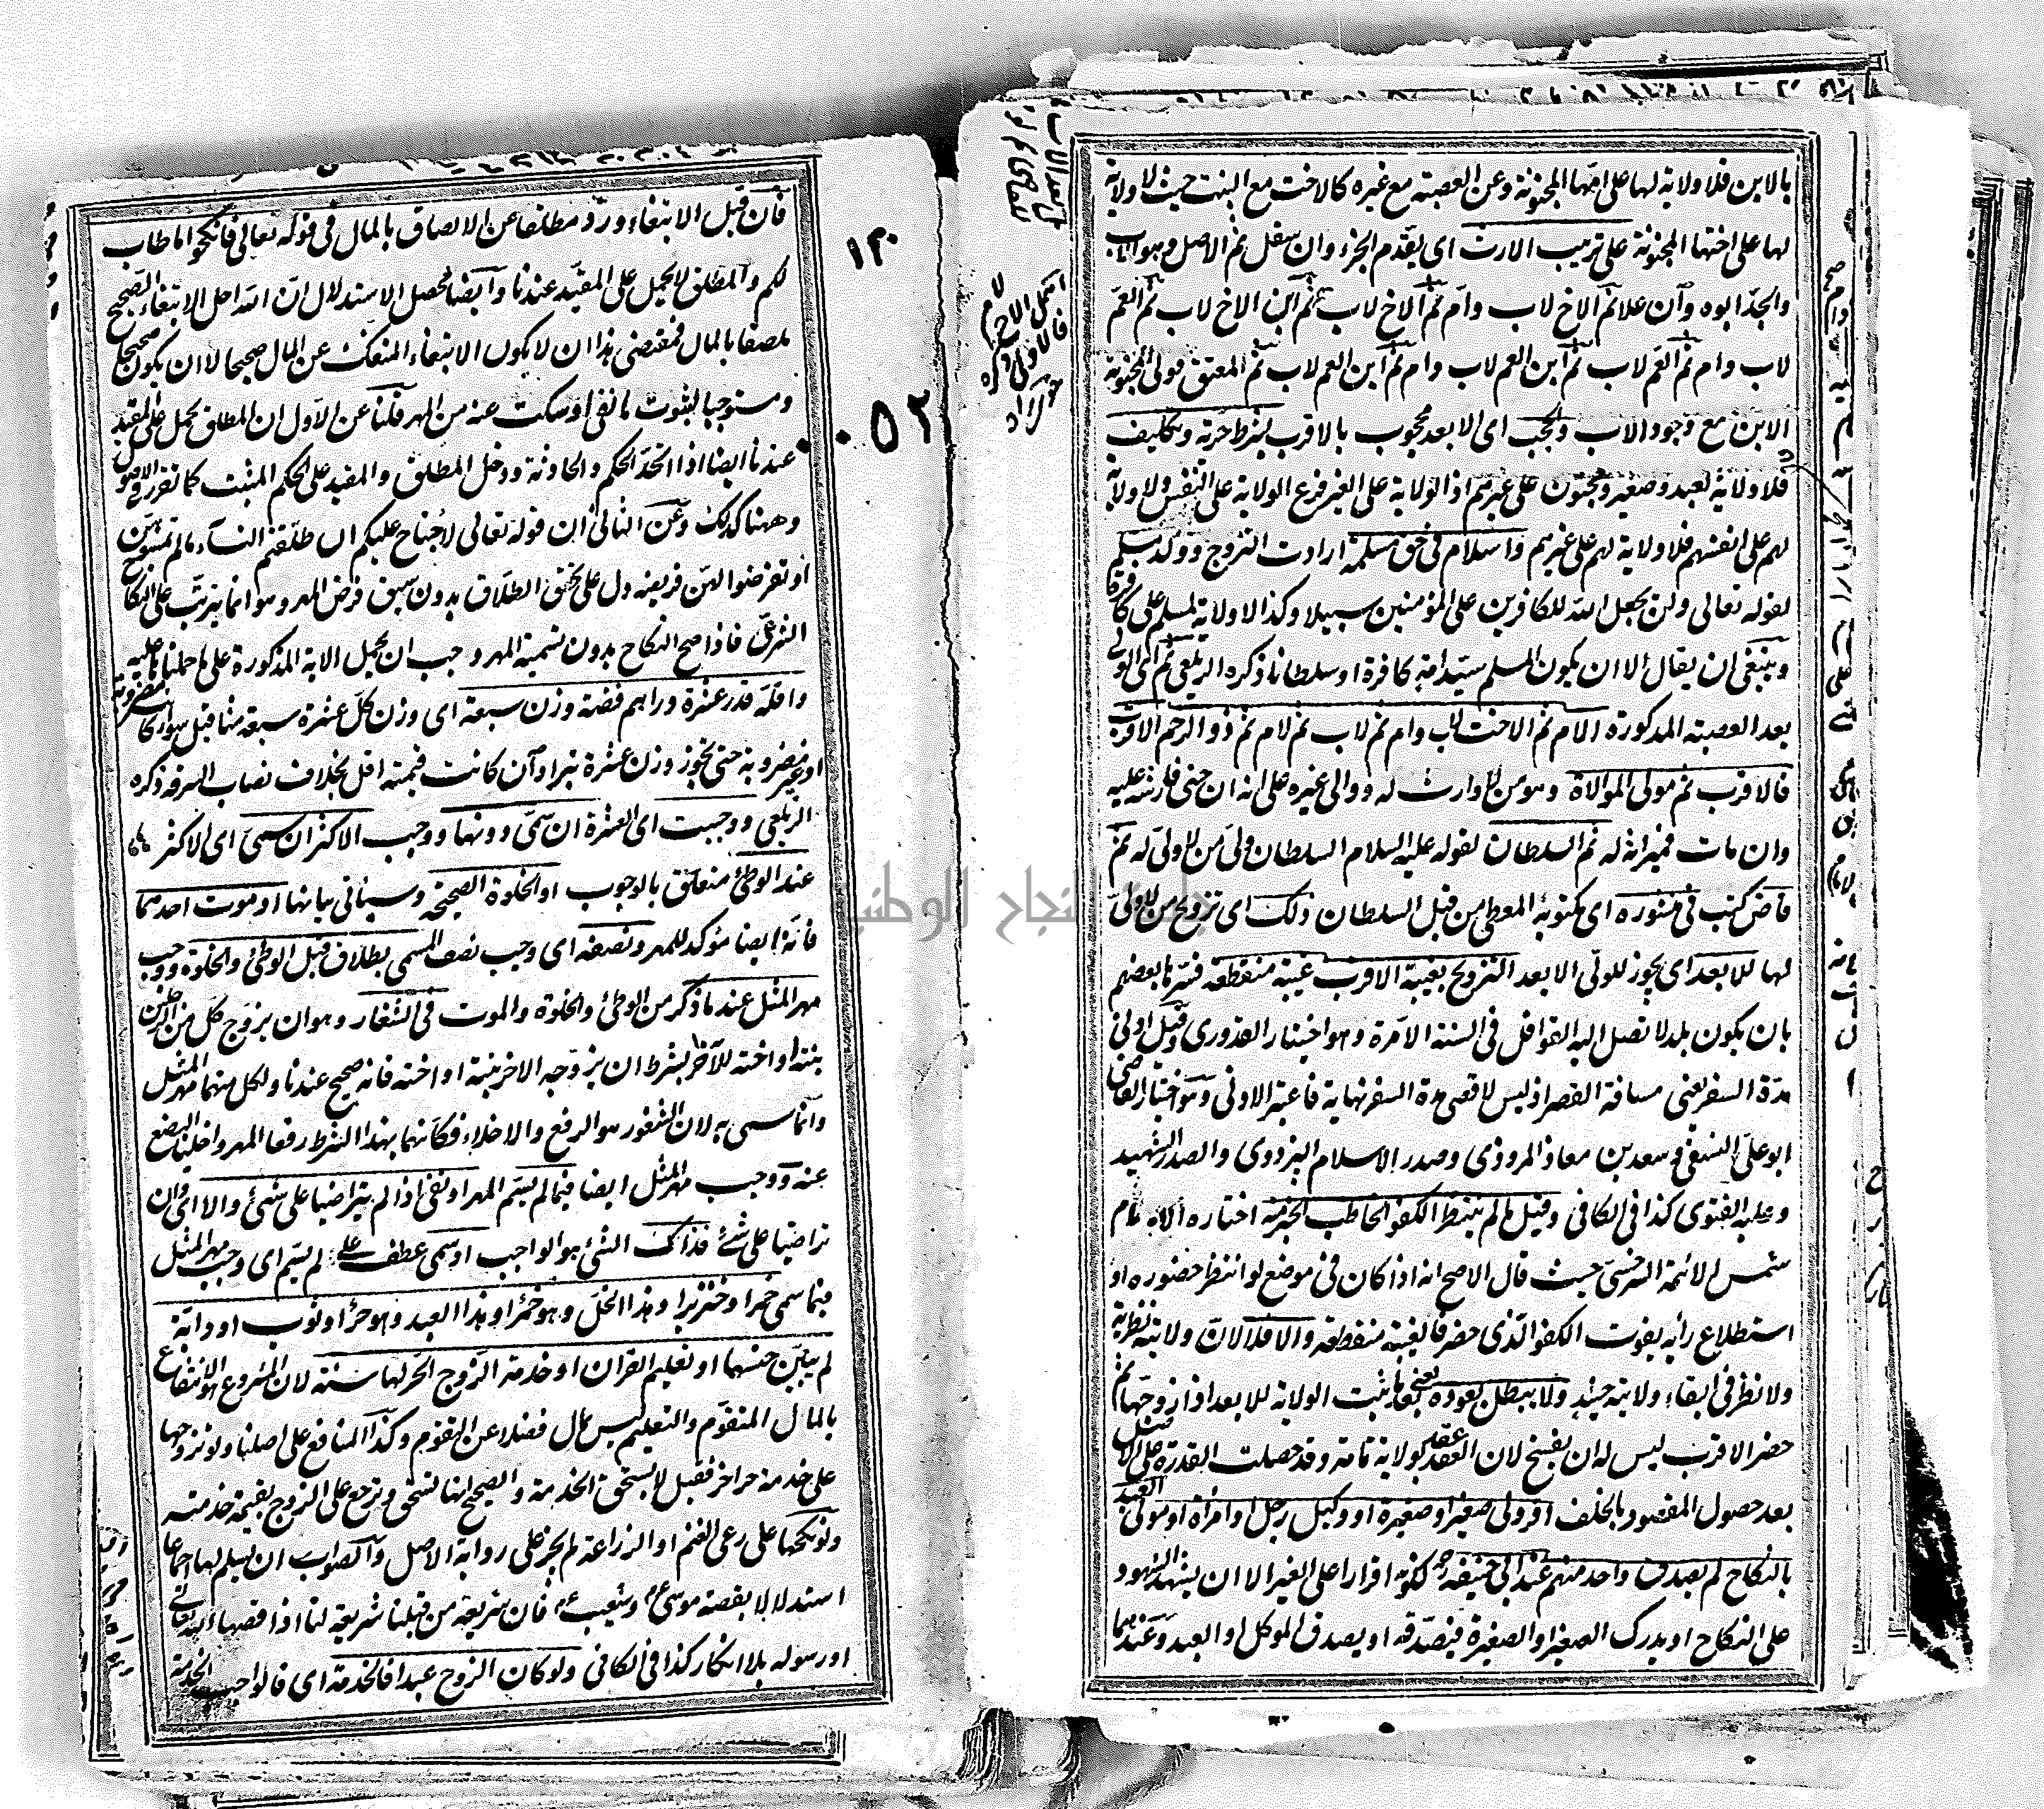 بالابن فلا ولاية لها على امها المجنونة وعن العصبة مع غيره كالاخت مع البنت حيث لا ولاية
لها على اختها المجنونة على ترتيب الارث اى يقدم الجزء وان سفل ثم الاصل وهو الاب
والجد ابوه وان علا ثم الاخ لاب وام ثم الاخ لاب ثم ابن الاخ لاب ثم العم
لاب وام ثم العم لاب ثم ابن العم لاب وام ثم ابن العم لاب ثم المعتق فولى المجنونة
الابن مع وجود الاب والحجب اى الابعد محجوب بالاقرب بشرط حرية وتكليف
فلا ولاية لعبد وصغير ومجنون على غيرهم اذ الولاية على الغير فرع الولاية على النفس ولا ولاية
لهم على انفسهم فلا ولاية لهم على غيرهم واسلام فى حق مسلمة ارادت التزوج وولد مسلم
لقوله تعالى ولن يجعل الله للكافرين على المؤمنين سبيلا وكذا لا ولاية لمسلم على كافرة
وينبغى ان يقال الا ان يكون المسلم سيد امة كافرة او سلطانا ذكره الزيلعى ثم اى الولى
بعد العصبة المذكورة الام ثم الاخت لاب وام ثم لاب ثم لام ثم ذو الرحم الاقرب
فالاقرب ثم مولى الموالاة وهو من لا وارث له ووالى غيره على انه ان جنى فارشه عليه
وان مات فميراثه له ثم السلطان لقوله عليه السلام السلطان ولى من لا ولى له ثم
قاض كتب فى منشوره اى مكتوبة المعطى من قبل السلطان ذلك اى تزويج من لا ولى
لها للابعد اى يجوز للولى الابعد التزويج بغيبة الاقرب غيبة منقطعة فسرها بعضهم
بان يكون بلد لا تصل اليه القوافل فى السنة الا مرة وهو اختيار القدورى وقيل ادنى
مدة السفر يعنى مسافة القصر اذ ليس لاقصى مدة السفر نهاية فاعتبر الادنى وهو اختيار القاضى
ابو على النسفى وسعد بن معاذ المروذى وصدر الاسلام البزدوى والصدر الشهيد
وعليه الفتوى كذا فى الكافى وقيل ما لم ينتظر الكفو الخاطب الخبر منه اختاره الامام
شمس الائمة السرخسى حيث قال الاصح انه اذا كان فى موضع لو انتظر حضوره او
استطلاع رأيه يفوت الكفو الذى حضر فالغيبة منقطعة والا فلا لان ولايته نظرية
ولا نظر فى ابقاء ولايته حينئذ ولا يبطل بعوده يعنى بعد ما ثبت الولاية للابعد اذا زوجها ثم
حضر الاقرب ليس له ان يفسخ لان العقد عقد بولاية تامة وقد حصلت القدرة على الاصل
بعد حصول المقصود بالخلف اقر ولى صغير او صغيرة او وكيل رجل وامراة او مولى العبد
بالنكاح لم يصدق واحد منهم عند ابى حنيفة رح لكونه اقرارا على الغير الا ان يشهد الشهود
على النكاح او يدرك الصغير او الصغيرة فيصدقه او يصدق الموكل او العبد وعندهما
١٣٠
٥٢
فان قيل الابتغاء ورد مطلقا عن الالصاق بالمال فى قوله تعالى فانكحوا ما طاب
لكم والمطلق لا يحمل على المقيد عندنا وايضا تحصل الاستدلال ان الله احل الابتغاء الصحيح
ملصقا بالمال فمقتضى هذا ان لا يكون الابتغاء المنفك عن المال صحيحا لا ان يكون صحيحا
ومستوجبا لثبوت ما نفى او سكت عنه من المهر قلنا عن الاول ان المطلق يحمل على المقيد
عندنا ايضا اذا اتحد الحكم والحادثة ودخل المطلق والمقيد على الحكم المثبت كما تقرر فى الاصول
وههنا كذلك وعن الثانى ان قوله تعالى لا جناح عليكم ان طلقتم النساء ما لم تمسوهن
او تفرضوا لهن فريضة دل على تحقق الطلاق بدون سبق فرض المهر وهو انما يترتب على النكاح
الشرعى فاذا صح النكاح بدون تسمية المهر وجب ان يحمل الاية المذكورة على ما حملنا عليه
واقله قدر عشرة دراهم فضة وزن سبعة اى وزن كل عشرة سبعة مثاقيل سواء كان مضروبة
او غير مضروبة حتى يجوز وزن عشرة تبرا وان كانت قيمته اقل بخلاف نصاب السرقة ذكره
الزيلعى ووجبت اى العشرة ان سمى دونها ووجب الاكثر ان سمى اى الاكثر
عند الوطئ متعلق بالوجوب او الخلوة الصحيحة وسياتى بيانها او موت احدهما
فانه ايضا مؤكد للمهر ونصفه اى وجب نصف المسمى بطلاق قبل الوطئ والخلوة ووجب
مهر المثل عند ما ذكر من الوطئ والخلوة والموت فى الشغار وهو ان يزوج كل من الرجلين
بنته او اخته للآخر بشرط ان يزوجه الاخر بنته او اخته فانه صحيح عندنا ولكل منهما مهر المثل
وانما سمى به لان الشغور هو الرفع والاخلاء فكانهما بهذا الشرط رفعا المهر واخليا البضع
عنه ووجب مهر المثل ايضا فيما لم يسم المهر او نفى اذا لم يتراضيا على شئ والا اى وان
تراضيا على شئ فذاك الشئ هو الواجب او سمى عطف على لم يسم اى وجب مهر المثل
فيما سمى خمرا او خنزيرا او هذا الخل وهو خمر او هذا العبد وهو حر او ثوب او دابة
لم يبين جنسهما او تعليم القران او خدمة الزوج الحر لها سنة لان المشروع هو الابتغاء
بالمال المتقوم والتعليم ليس بمال فضلا عن التقوم وكذا المنافع على اصلنا ولو تزوجها
على خدمة حر اخر فقيل لا يستحق الخدمة والصحيح انها تستحق وترجع على الزوج بقيمة خدمته
ولو نكحها على رعى الغنم او الزراعة لم يجز على رواية الاصل والصواب ان يسلم لها اجماعا
استدلالا بقصة موسى وشعيب فان شريعة من قبلنا شريعة لنا اذا قصها الله تعالى
او رسوله بلا انكار كذا فى الكافى ولو كان الزوج عبدا فالخدمة اى فالواجب الخدمة